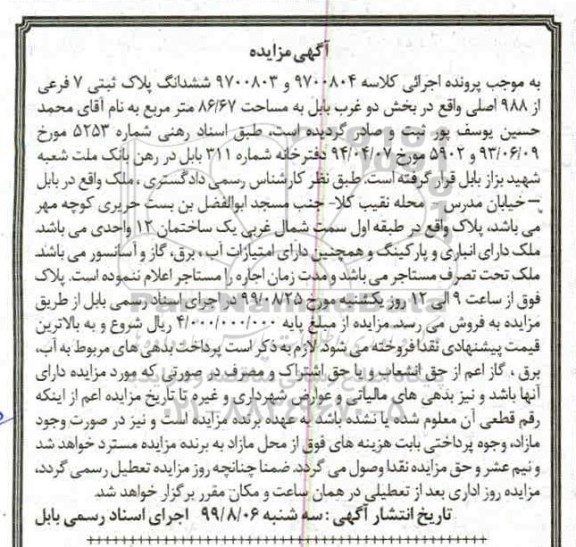 آگهی مزایده
به موجب پرونده اجرائی کلاسه ۹۷۰۰۸۰۴ و ۹۷۰۰۸۰۳ ششدانگ پلاک ثبتی ۷ فرعی
از ۹۸۸ اصلی واقع در بخش دو غرب بابل به مساحت ۸۶/۶۷ متر مربع به نام آقای محمد
حسین یوسف پور ثبت و صادر گردیده است، طبق اسناد رهنی شماره ۵۲۵۳ مورخ
۹۳/۰۶/۰۹ و ۵۹۰۲ مورخ ۹۴/۰۴/۰۷ دفترخانه شماره ۳۱۱ بابل در رهن بانک ملت شعبه
شهید بزاز بابل قرار گرفته است. طبق نظر کارشناس رسمی دادگستری، ملک واقع در بابل
–خیابان مدرس – محله نقیب کلا- جنب مسجد ابوالفضل بن بست حریری کوچه مهر
می باشد، پلاک واقع در طبقه اول سمت شمال غربی یک ساختمان ۱۲ واحدی می باشد
ملک دارای انباری و پارکینگ و همچنین دارای امتیازات آب، برق، گاز و آسانسور می باشد
ملک تحت تصرف مستاجر می باشد و مدت زمان اجاره را مستاجر اعلام ننموده است. پلاک
فوق از ساعت ۹ الی ۱۲ روز یکشنبه مورخ ۹۹/۰۸/۲۵ در اجرای اسناد رسمی بابل از طریق
مزایده به فروش می رسد. مزایده از مبلغ پایه ۴/۰۰۰/۰۰۰/۰۰۰ ریال شروع و به بالاترین
قیمت پیشنهادی نقدا فروخته می شود. لازم به ذکر است پرداخت بدهی های مربوط به آب،
برق، گاز اعم از حق انشعاب و یا حق اشتراک و مصرف در صورتی که مورد مزایده دارای
آنها باشد و نیز بدهی های مالیاتی و عوارض شهرداری و غیره تا تاریخ مزایده اعم از اینکه
رقم قطعی آن معلوم شده یا نشده باشد به عهده برنده مزایده است و نیز در صورت وجود
مازاد، وجوه پرداختی بابت هزینه های فوق از محل مازاد به برنده مزایده مسترد خواهد شد
و نیم عشر و حق مزایده نقدا وصول می گردد. ضمنا چنانچه روز مزایده تعطیل رسمی گردد،
مزایده روز اداری بعد از تعطیلی در همان ساعت و مکان مقرر برگزار خواهد شد.
تاریخ انتشار آگهی : سه شنبه ۹۹/۸/۰۶ اجرای اسناد رسمی بابل